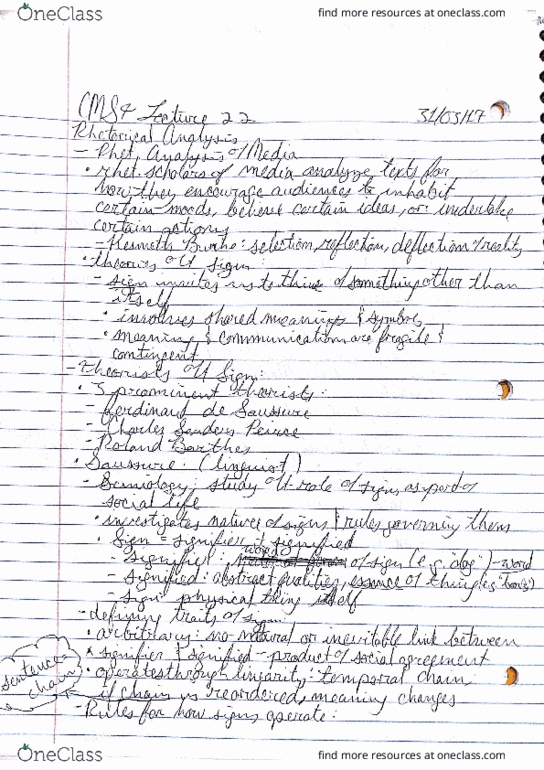 OneClass
find more resources at oneclass.com
CMS& Lecture 22
31/03/17
Rhetorical Analysis
- Rhet. Analysis of Media
• rhet. scholars of media analyze texts for
how they encourage audiences to inhabit
certain moods, believe certain ideas, or undertake
certain actions
- Kenneth Burke: selection, reflection, deflection of reality
• theories of sign
- sign invites us to think of something other than
itself
• involves shared meanings & symbols
• meaning & communication are fragile &
contingent
- theorists of sign:
• 3 prominent theorists:
- Ferdinand de Saussure
- Charles Sanders Peirce
- Roland Barthes
• Saussure: (linguist)
- Semiology: study of role of signs as part of
social life
• investigates nature of signs & rules governing them
• Sign = signifier & signified
- signifier: word of sign (e.g. dog) - word
- signified: abstract qualities, essence of thing
- sign: physical thing itself
- defining traits of sign:
• arbitrary: no natural or inevitable link between
signifier & signified - product of social agreement
• operates through linearity: temporal chain
sentence chain
if chain is reordered, meaning changes
- Rules for how signs operate:
OneClass
find more resources at oneclass.com